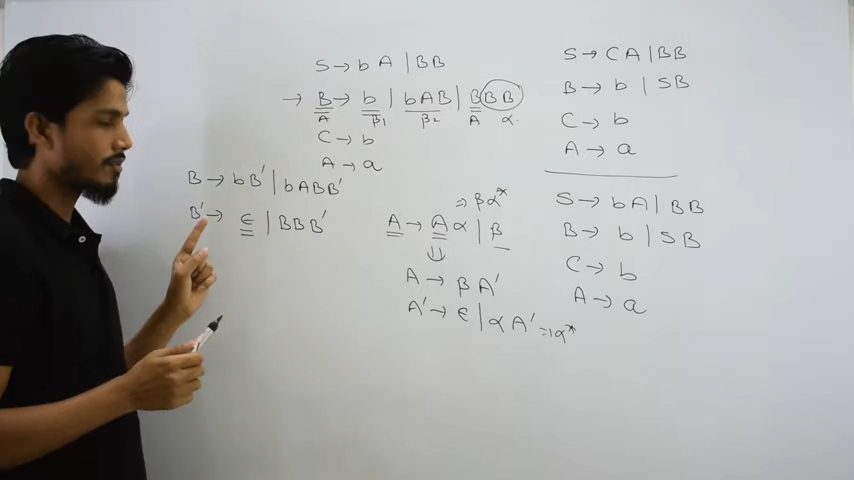 S → b A | BB
→ B → b | bAB | BBB
A β₁ β₂ A α.
C → b
A → a
B → bB' | bABB'
B' → ∈ | BBB'
⇒ βα*
A → Aα | β
⇓
A → βA'
A' → ∈ | αA' ⇒ α*
S → CA | BB
B → b | SB
C → b
A → a
S → bA | BB
B → b | SB
C → b
A → a